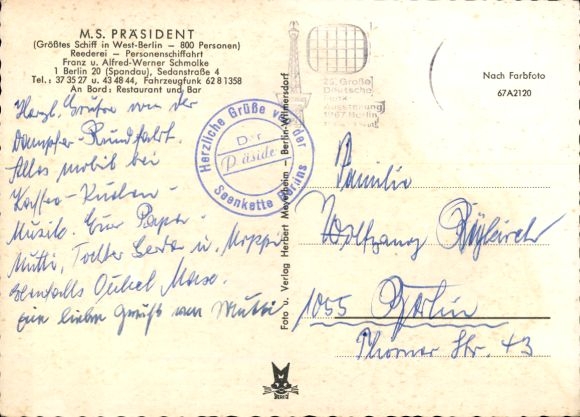 M.S. PRÄSIDENT
(Größtes Schiff in West-Berlin — 800 Personen)
Reederei — Personenschiffahrt
Franz u. Alfred-Werner Schmolke
1 Berlin 20 (Spandau), Sedanstraße 4
Tel.: 37 35 27 u. 43 48 44, Fahrzeugfunk 62 8 1358
An Bord: Restaurant und Bar
Herzl. Grüße von der
Dampfer-Rundfahrt.
Alles mobil bei
Kaffee-Kuchen-
Musik. Euer Papa.
Mutti, Tochter u. Moppi
Ebenfalls Onkel Maxe.
Ein lieber Gruß von Mutti
Herzliche Grüße von der
Der
Präsident
Seenkette Berlins
25. Große
Deutsche
Funk
Ausstellung
1967 Berlin
Foto u. Verlag Herbert Meyerheim — Berlin-Wilmersdorf
Nach Farbfoto
67A2120
Familie
Wolfgang
1055 Berlin
Thorner Str. 43